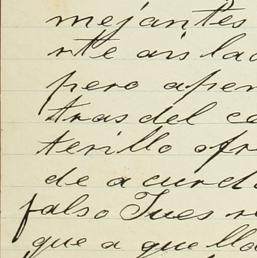 mejantes
rte ais lad
pero apen
tras del ce
terillo ofr
de acurdo
falso Jues re
que a quella